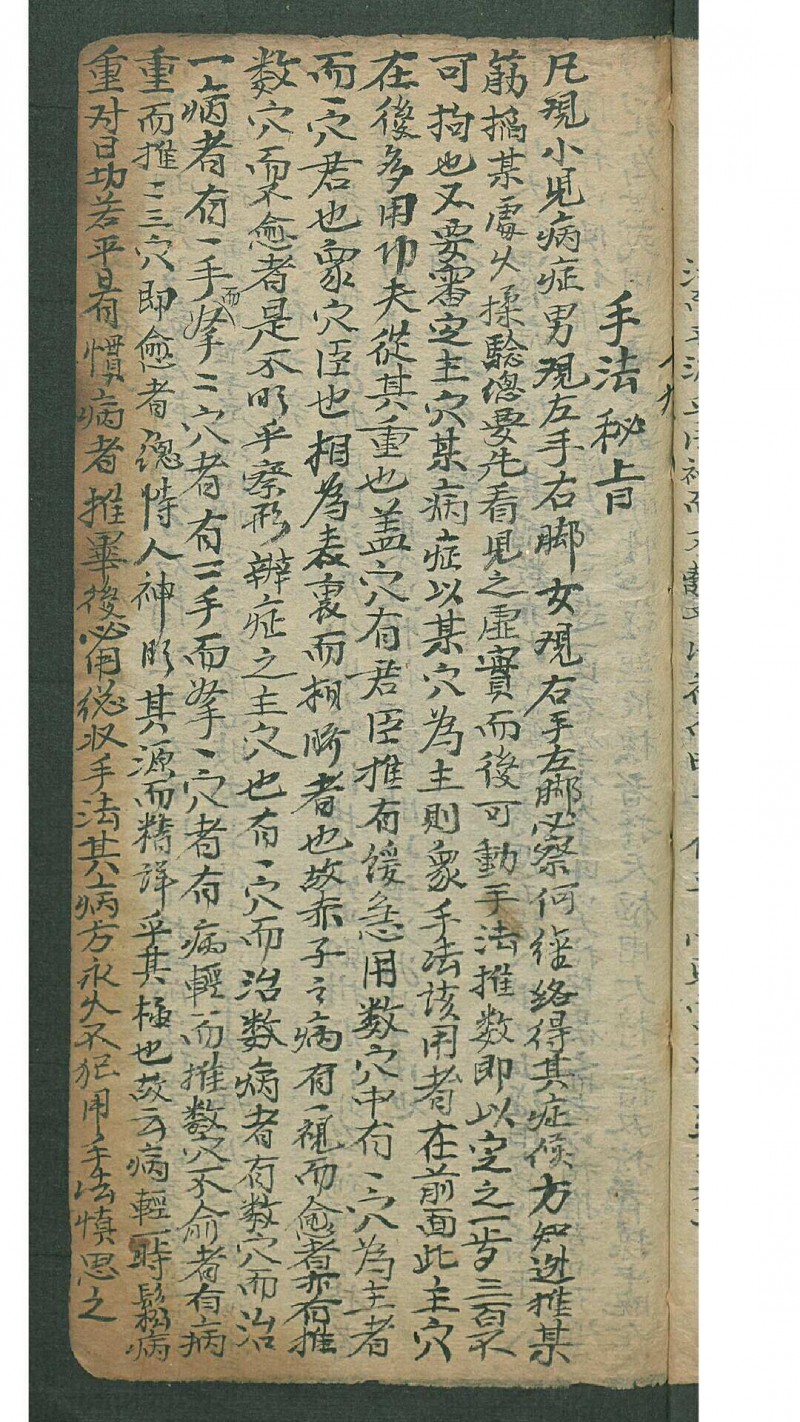 手法秘旨
凡視小児病症男視左手右脚女視右手左脚必察何經絡得其症候方知逃推某
筋掐某處火揉驗總要先看児之虛實而後可動手法推数即以定之一步三百不
可拘也又要審定主穴某病症以某穴為主則衆手法該用者在前面此主穴
在後多用功夫從其重也盖穴有君臣推有緩急用数穴中有一穴為主者
而一穴君也衆穴臣也相為表裏而相濟者也故赤子之病有一視而愈者亦有推
数穴而不愈者是不明乎察形辨症之主穴也有一穴而治数病者有数穴而治
一病者有一手而拏二穴者有二手而拏一穴者有病輕而推数穴不愈者有病
重而推二三穴即愈者總恃人神明其源而精詳乎其極也故云病輕一時鬆病
重对日功若平日有慣病者推畢後必用總收手法其病方永久不犯用手法慎思之